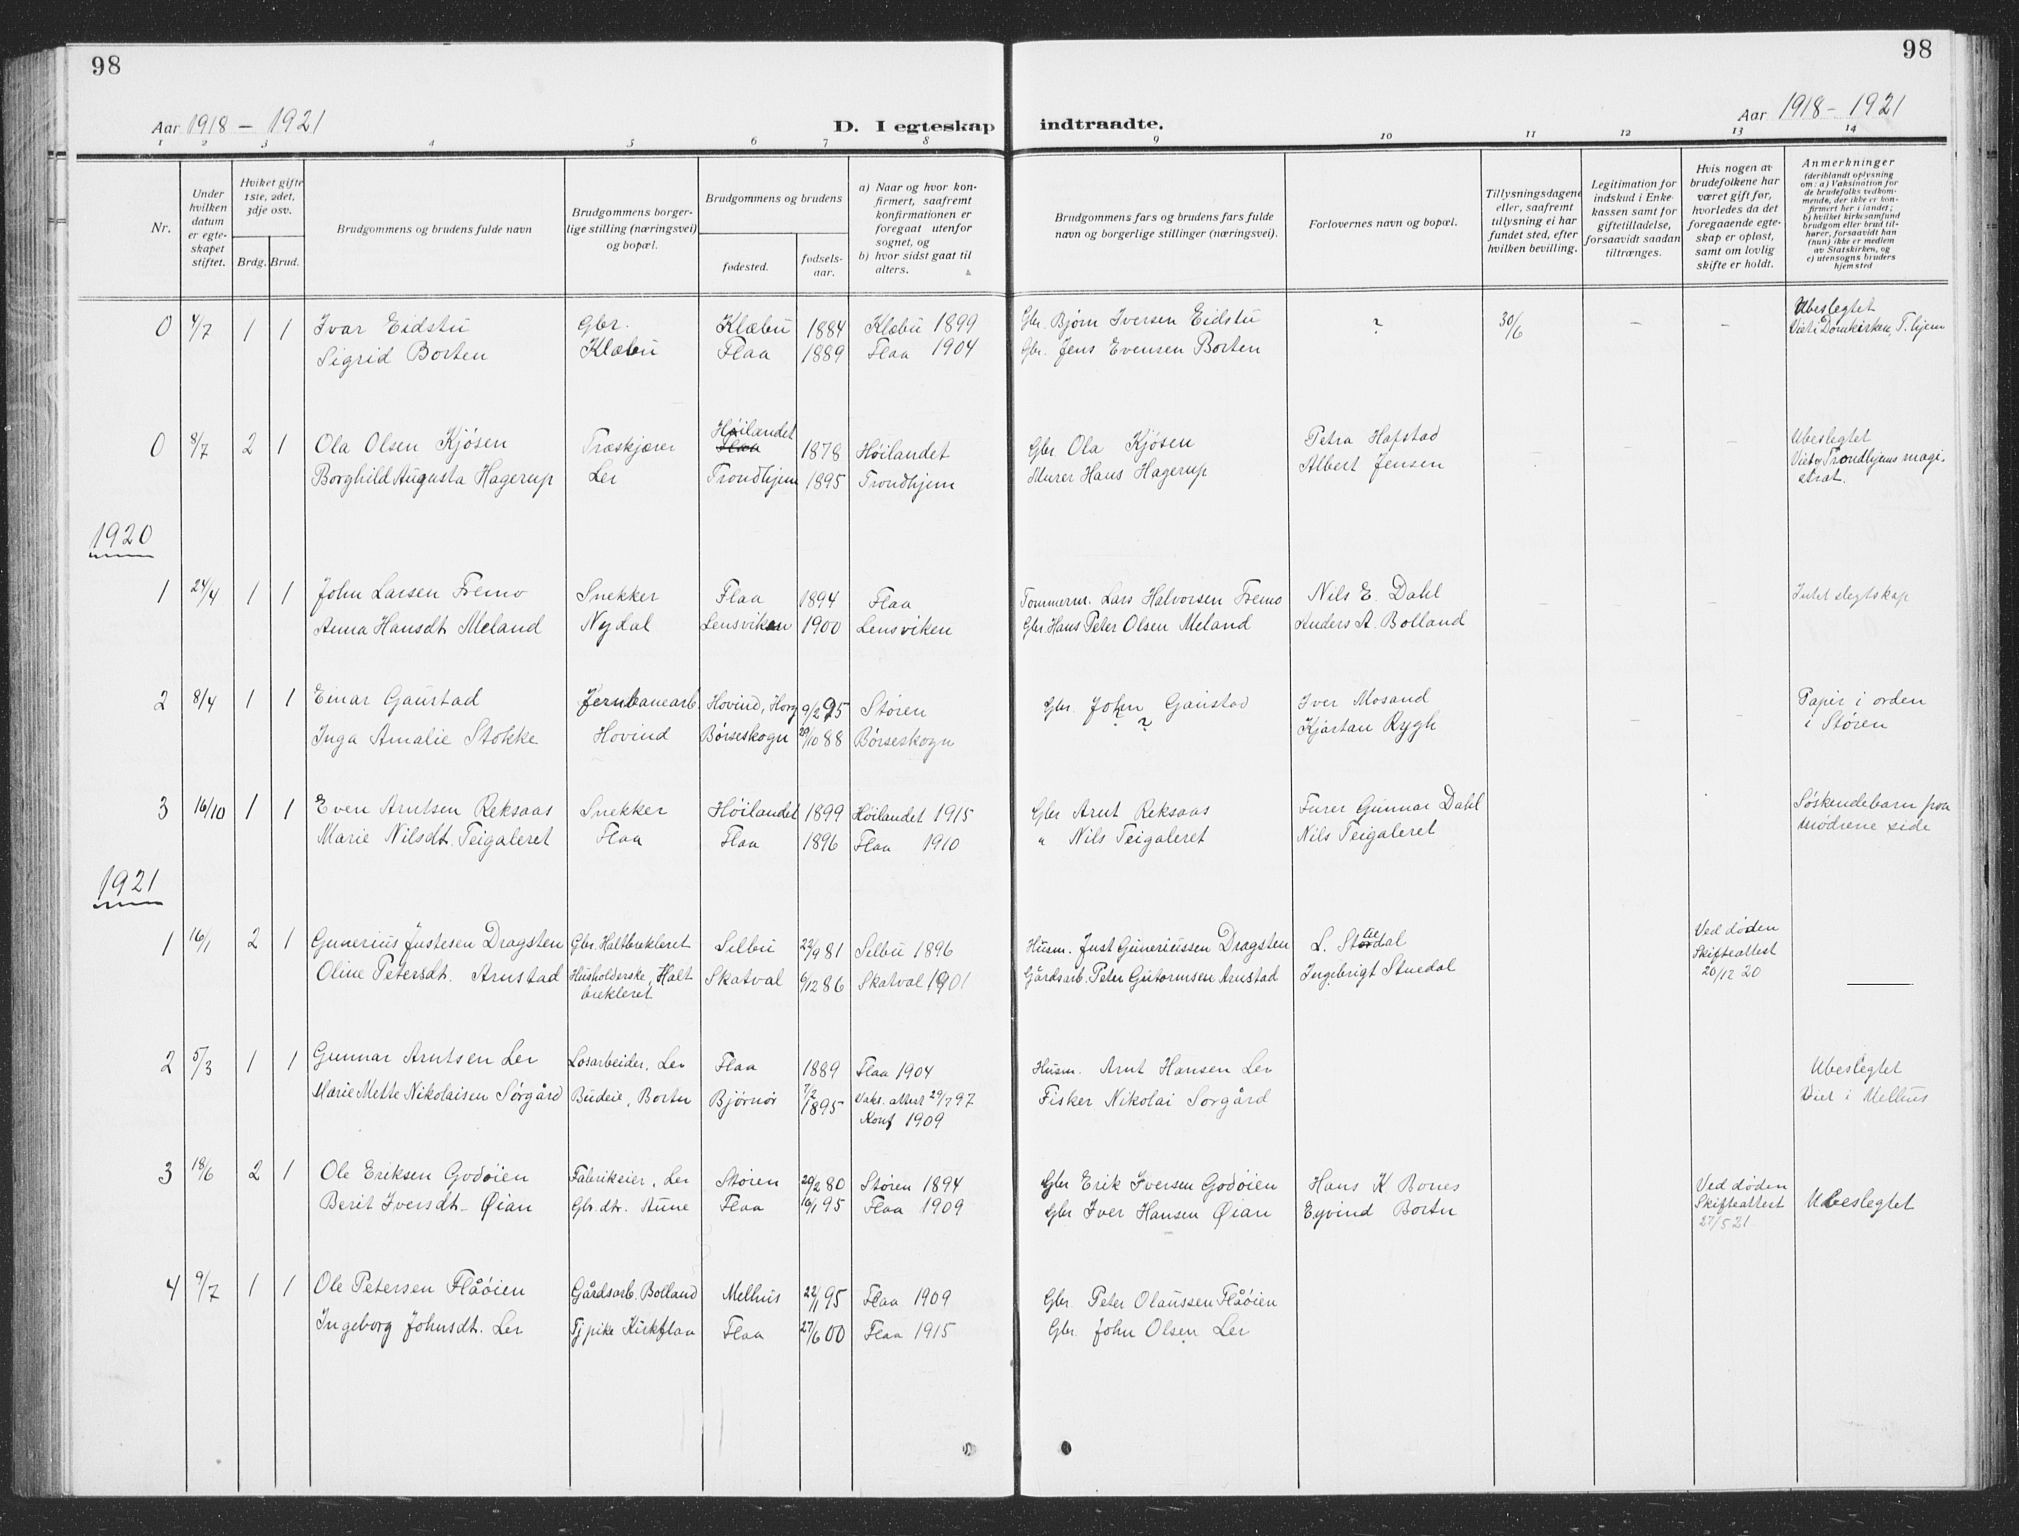 98
98
Aar 1918 – 1921
D. I egteskap indtraadte.
Aar 1918 – 1921
1 2 3 4 5 6 7 8 9 10 11 12 13 14
Nr.
Under hvilken datum er egteskapet stiftet.
Hviket gifte 1ste, 2det, 3dje osv.
Brdg. Brud.
Brudgommens og brudens fulde navn
Brudgommens borgerlige stilling (næringsvei) og bopæl.
Brudgommens og brudens
fødested.
fødselsaar.
a) Naar og hvor konfirmert, saafremt konfirmationen er foregaat utenfor sognet, og
b) hvor sidst gaat til alters.
Brudgommens fars og brudens fars fulde navn og borgerlige stillinger (næringsvei).
Forlovernes navn og bopæl.
Tillysningsdagene eller, saafremt tillysning ei har fundet sted, efter hvilken bevilling.
Legitimation for indskud i Enkekassen samt for giftetilladelse, forsaavidt saadan tiltrænges.
Hvis nogen av brudefolkene har været gift før, hvorledes da det foregaaende egteskap er opløst, samt om lovlig skifte er holdt.
Anmerkninger
(deriblandt oplysning om: a) Vaksination for de brudefolks vedkommende, der ikke er konfirmert her i landet; b) hvilket kirkesamfund brudgom eller brud tilhører, forsaavidt han (hun) ikke er medlem av Statskirken, og c) utensogns bruders hjemsted
0 4/7 1 1 Ivar Eidstu Gbr. Klæbu 1884 Klæbu 1899 Gbr. Bjørn Iversen Eidstu ? 30/6 – – Ubeslegtet
Sigrid Borten Klæbu Flaa 1889 Flaa 1904 Gbr. Jens Evensen Borten Viet i Domkirken, T.hjem
0 8/7 2 1 Ola Olsen Kjøsen Træskjærer Høilandet Flaa 1878 Høilandet Gbr Ola Kjøsen Petra Hafstad – – – Ubeslegtet
Borghild Augusta Hagerup Ler Trondhjem 1895 Trondhjem Murer Hans Hagerup Albert Jensen Viet v Trondhjems magistrat.
1920
1 24/4 1 1 John Larsen Fremo Snekker Flaa 1894 Flaa Tømmerm. Lars Halvorsen Fremo Nils E. Dahl – – – Intet slegtskap
Anna Hansdt Meland Nydal Lensviken 1900 Lensviken Gbr. Hans Peter Olsen Meland Anders A. Bolland
2 8/4 1 1 Einar Gaustad Jernbanearb. Hovind, Horg 9/2 95 Støren Gbr. John Gaustad Iver Mosand – – – Papir i orden
Inga Amalie Stokke Hovind Børseskogn 20/10 88 Børseskogn ? Kjartan Rygh i Støren
3 16/10 1 1 Even Arntsen Reksaas Snekker Høilandet 1899 Høilandet 1915 Gbr Arnt Reksaas Furer Gunnar Dahl Søskendebarn fra
Marie Nilsdt. Teigaleret Flaa Flaa 1896 Flaa 1910 " Nils Teigaleret Nils Teigaleret mødrene side
1921
1 16/1 2 1 Gunerius Justesen Dragsten Gbr. Haltbrekleret Selbu 22/9 81 Selbu 1896 Husm. Just Guneriussen Dragsten L. Ved døden
Oline Petersdt. Arnstad Husholderske, Haltbrekleret Skatval 6/12 86 Skatval 1901 Gårdsarb. Peter Gutormsen Arnstad Ingebrigt Stuedal Skifteattest 20/12 20
2 5/3 1 1 Gunnar Arntsen Ler Løsarbeider, Ler Flaa 1889 Flaa 1904 Husm. Arnt Hansen Ler Ubeslegtet
Marie Mette Nikolaisen Sørgård Budeie, Borten Bjørnør 7/2 1895 Vaks. attest 29/7 97 Fisker Nikolai Sørgård Viet i Melhus
Konf 1909
3 18/6 2 1 Ole Eriksen Godøien Fabrikeier, Ler Støren 29/2 80 Støren 1894 Gbr Erik Iversen Godøien Hans K Bones Ved døden
Berit Iversdt. Øian Gbr.dtr. Aune Flaa 16/1 95 Flaa 1909 Gbr Iver Hansen Øian Eyvind Borten Skifteattest 27/5 21 Ubeslegtet
4 9/7 1 1 Ole Petersen Flåøien Gårdsarb. Bolland Melhus 22/1 95 Flaa 1909 Gbr. Peter Olaussen Flåøien
Ingeborg Johnsdt. Ler Tj pike Kirkflaa Flaa 27/6 00 Flaa 1915 Gbr. John Olsen Ler